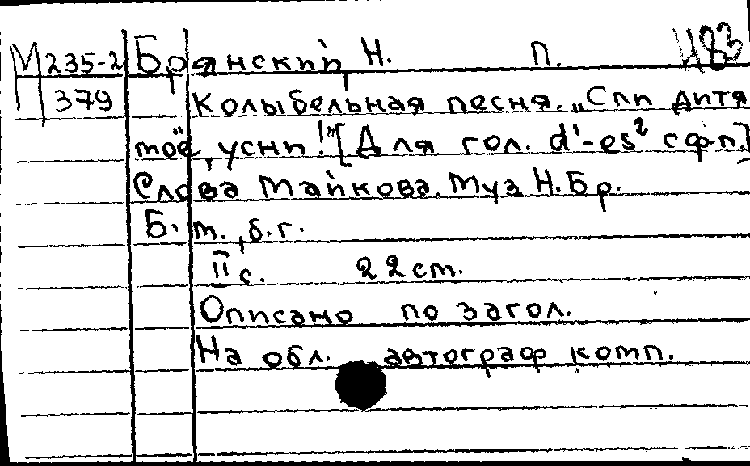 М 235-2 Брянский, Н. П. И83
379 Колыбельная песня. „Спи дитя
моё, усни!" [Для гол. d'-es² с ф-п.]
Слова Майкова. Муз Н. Бр.
Б. м., б. г.
II с. 22 cm.
Описано по загол.
На обл. автограф комп.